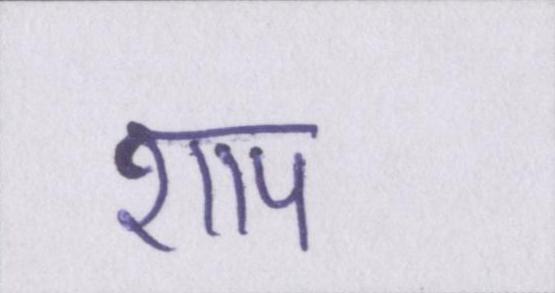 शाप